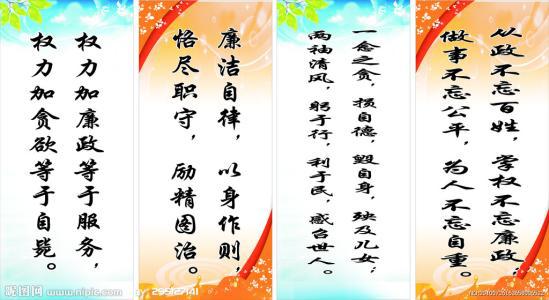 权力加廉政等于服务，
权力加贪欲等于自毙。
廉洁自律，以身作则，
恪尽职守，励精图治。
一念之贪，损自德，毁自身，殃及儿女；
两袖清风，躬于行，利于民，感召世人。
从政不忘百姓，掌权不忘廉政，
做事不忘公平，为人不忘自重。
昵图网
www.nipic.com